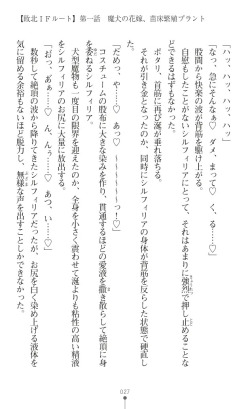 【敗北IFルート】第一話　魔犬の花嫁、苗床繁殖プラント
「ハッ、ハッ、ハッ」
「なっ、急にそんなぁ♡　ダメ、まって♡、くる……♡」
股間から快楽の波が背筋を駆け上がる。
自慰もしたことがないシルフィリアにとって、それはあまりに強烈で押し止めることなどできるはずもなかった。
ポタリ、首筋に再び涎が垂れ落ちる。
それが引き金となったのか、同時にシルフィリアの身体が背筋を反らした状態で硬直し――
「だめっ、や……♡　あっ♡　～～～～～～っ！♡」
コスチュームの股布に大きな染みを作り、貫通するほどの愛液を撒き散らして絶頂に身を委ねるシルフィリア。
犬型魔物も一度目の限界を迎えたのか、全身を小さく震わせて涎よりも粘性の高い精液をシルフィリアのお尻に大量に放出する。
「おっ♡、あぁ……♡　ん、んぅ？♡　あつ、い……♡」
数秒して絶頂の波から降りてきたシルフィリアだったが、お尻を白く染め上げる液体を気に留める余裕もないほど脱力し、無様な声を出すことしかできなかった。
027